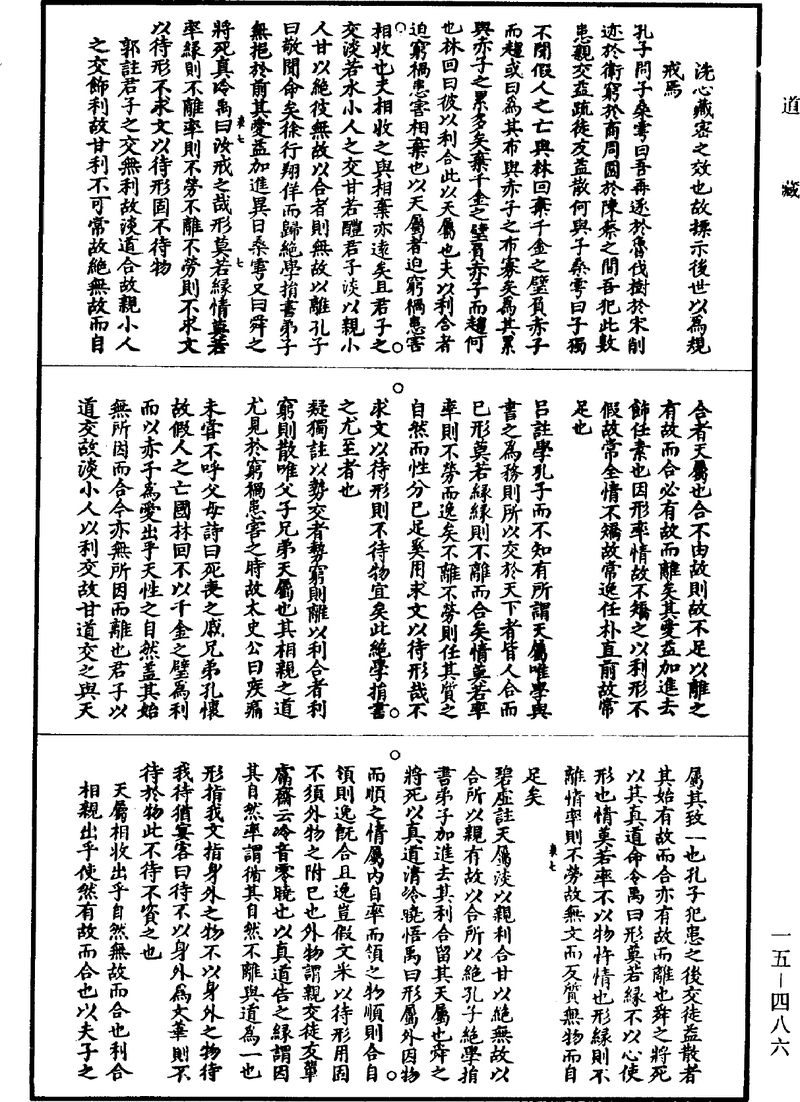 道藏
洗心藏密之效也故標示後世以為規
戒焉
孔子問子桑雽曰吾再逐於魯伐樹於宋削
迹於衛窮於商周圍於陳蔡之間吾犯此數
患親交益疏徒友益散何與子桑雽曰子獨
不聞假人之亡與林回棄千金之璧負赤子
而趨或曰為其布與赤子之布寡矣為其累
與赤子之累多矣棄千金之璧負赤子而趨何
也林回曰彼以利合此以天屬也夫以利合者
迫窮禍患害相棄也以天屬者迫窮禍患害
相收也夫相收之與相棄亦遠矣且君子之
交淡若水小人之交甘若醴君子淡以親小
人甘以絕彼無故以合者則無故以離孔子
曰敬聞命矣徐行翔佯而歸絕學捐書弟子
無挹於前其愛益加進異日桑雽又曰舜之
將死真泠禹曰汝戒之哉形莫若緣情莫若
率緣則不離率則不勞不離不勞則不求文
以待形不求文以待形固不待物
郭註君子之交無利故淡道合故親小人
之交飾利故甘利不可常故絕無故而自
合者天屬也合不由故則故不足以離之
有故而合必有故而離矣其愛益加進去
飾任素也因形率情故不矯之以利形不
假故常全情不矯故常逸任朴直前故常
足也
呂註學孔子而不知有所謂天屬唯學與
書之為務則所以交於天下者皆人合而
已形莫若緣緣則不離而合矣情莫若率
率則不勞而逸矣不離不勞則任其質之
自然而性分已足奚用求文以待形哉不
求文以待形則不待物宜矣此絕學捐書
之尤至者也
疑獨註以勢交者勢窮則離以利合者利
窮則散唯父子兄弟天屬也其相親之道
尤見於窮禍患害之時故太史公曰疾痛
未嘗不呼父母詩曰死喪之戚兄弟孔懷
故假人之亡國林回不以千金之璧為利
而以赤子為愛出乎天性之自然蓋其始
無所因而合今亦無所因而離也君子以
道交故淡小人以利交故甘道交之與天
屬其致一也孔子犯患之後交徒益散者
其始有故而合亦有故而離也舜之將死
以其真道命令禹曰形莫若緣不以心使
形也情莫若率不以物忤情也形緣則不
離情率則不勞故無文而反質無物而自
足矣
碧虛註天屬淡以親利合甘以絕無故以
合所以親有故以合所以絕孔子絕學捐
書弟子加進去其利合留其天屬也舜之
將死以真道清泠曉悟禹曰形屬外因物
而順之情屬內自率而領之物順則合自
領則逸既合且逸豈假文采以待形用固
不須外物之附已也外物謂親交徒友輩
鬳齋云泠音零曉也以真道告之緣謂因
其自然率謂循其自然不離與道為一也
形指我文指身外之物不以身外之物待
我待猶宴客曰待不以身外為文華則不
待於物此不待不資之也
天屬相收出乎自然無故而合也利合
相親出乎使然有故而合也以夫子之
一五－四八六